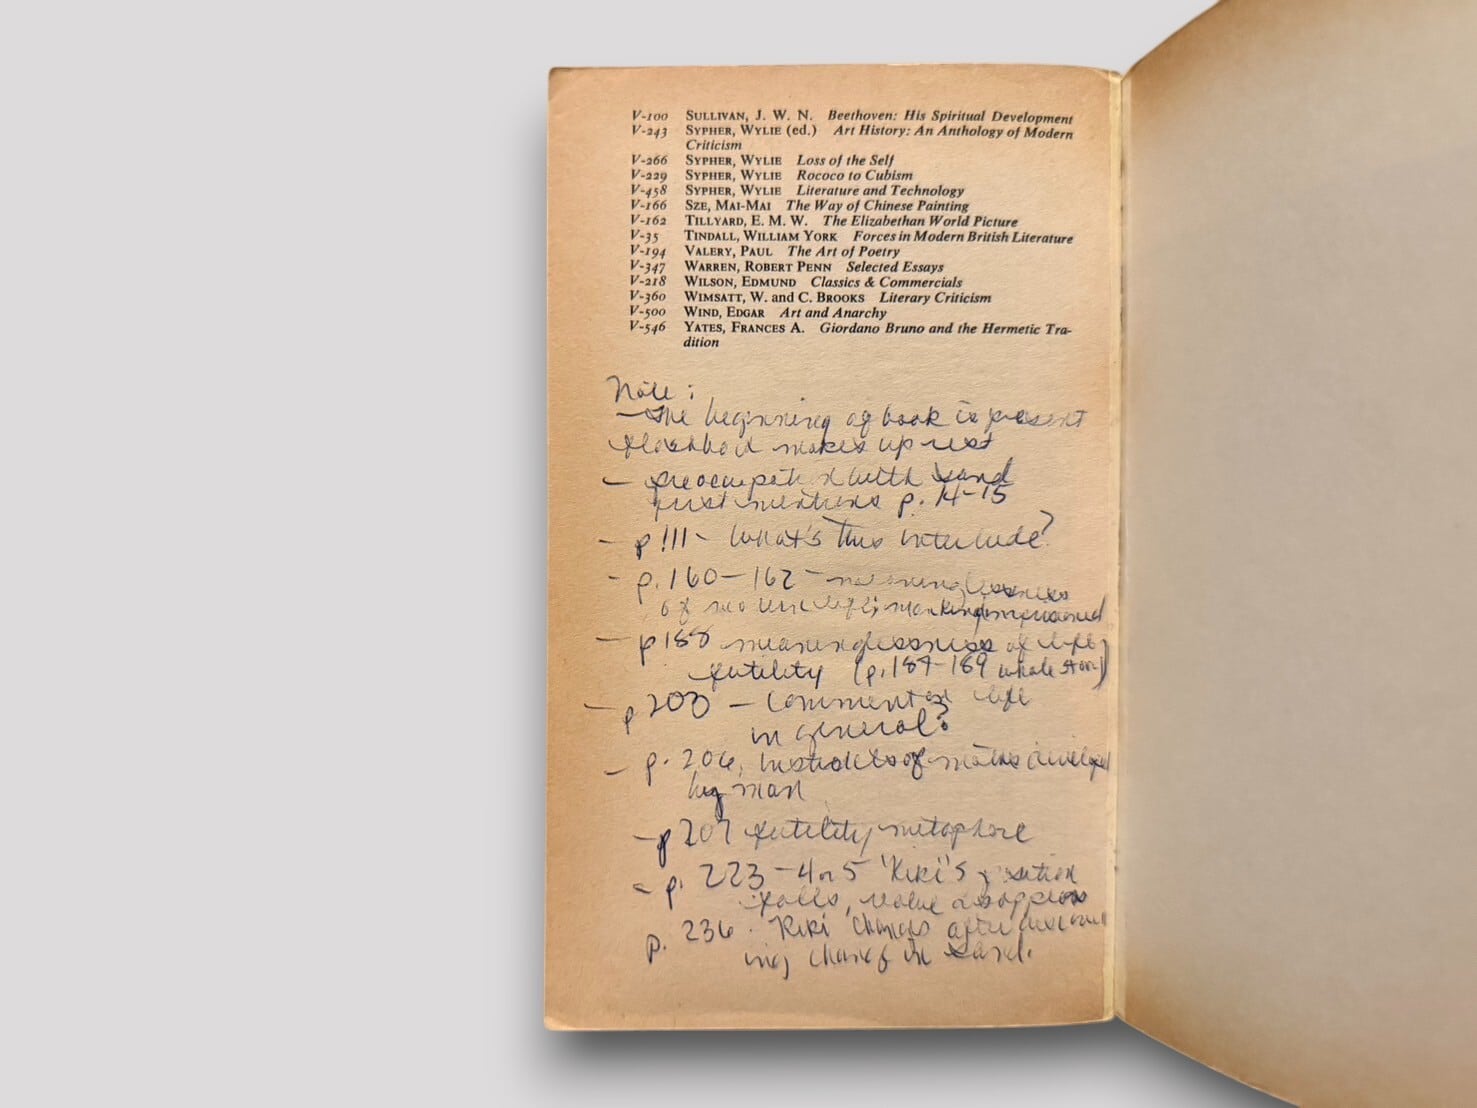 V-100 SULLIVAN, J. W. N. Beethoven: His Spiritual Development
V-243 SYPHER, WYLIE (ed.) Art History: An Anthology of Modern
Criticism
V-266 SYPHER, WYLIE Loss of the Self
V-229 SYPHER, WYLIE Rococo to Cubism
V-458 SYPHER, WYLIE Literature and Technology
V-166 SZE, MAI-MAI The Way of Chinese Painting
V-162 TILLYARD, E. M. W. The Elizabethan World Picture
V-35 TINDALL, WILLIAM YORK Forces in Modern British Literature
V-194 VALERY, PAUL The Art of Poetry
V-347 WARREN, ROBERT PENN Selected Essays
V-218 WILSON, EDMUND Classics & Commercials
V-360 WIMSATT, W. and C. BROOKS Literary Criticism
V-500 WIND, EDGAR Art and Anarchy
V-546 YATES, FRANCES A. Giordano Bruno and the Hermetic Tra-
dition
Note:
- The beginning of book is present
makes up rest
- preoccupation with sand
first mentions p. 14-15
- p 111 - What's this interlude?
- p. 160-162 - meaninglessness
of modern life; mankind imprisoned
- p 188 meaninglessness of life,
futility (p. 187-189 whole story)
- p 203 - Comment on life
in general?
- p. 206, of developed
by man
- p 207 futility metaphore
- p. 223-4 or 5 'Kiki's position
falls, value disappears
p. 236. Kiki changes after
ing change in sand.